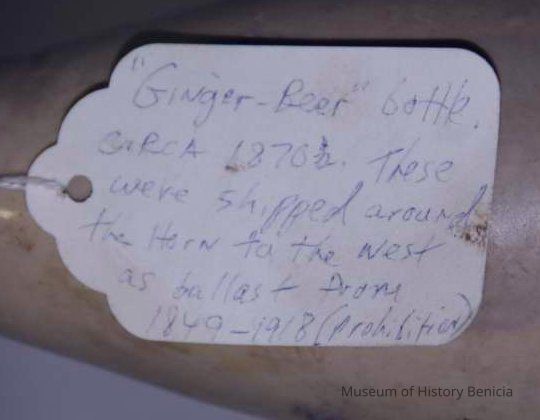 "Ginger-Beer" bottle.
CIRCA 1870's. These
were shipped around
the Horn to the West
as ballast from
1849-1918 (prohibition)
Museum of History Benicia